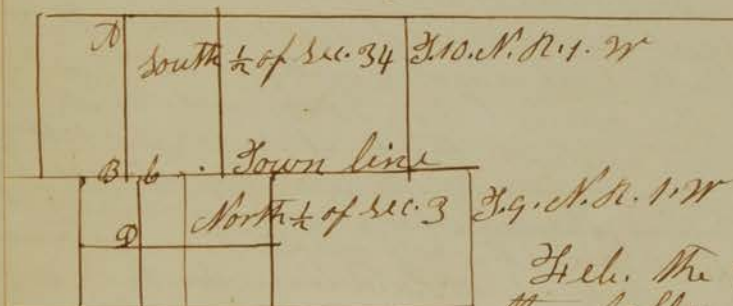 A
South ½ of Sec. 34 T.10.N.R.1.W
B C . Town line
D North ½ of Sec. 3 T.9.N.R.1.W
Feb. the